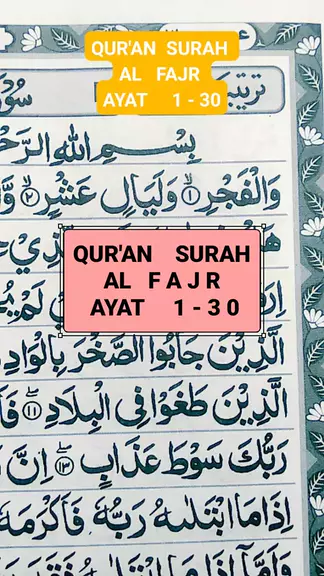 QUR'AN SURAH
AL FAJR
AYAT 1 - 30
بِسْمِ اللهِ
وَالْفَجْرِ ۝١ وَلَيَالٍ عَشْرٍ ۝٢
QUR'AN SURAH
AL F A J R
AYAT 1 - 3 0
الَّذِيْنَ جَابُوا الصَّخْرَ بِالْوَادِ
الَّذِيْنَ طَغَوْا فِى الْبِلَادِ ۝١١
رَبُّكَ سَوْطَ عَذَابٍ ۝١٣ اِنَّ
اِذَا مَا ابْتَلٰىهُ رَبُّهٗ فَاَكْرَمَهٗ
وَاَمَّآ اِذَا مَا ابْتَلٰىهُ